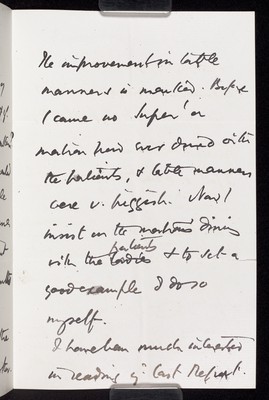 The improvement in table
manners is marked. Before
I came no Super' or
matron had ever dined with
the patients, & table manners
were v. piggish. Now I
insist on the matrons dining
with the patients & to set a
good example I do so
myself.
I have been much interested
in reading yr last Report.